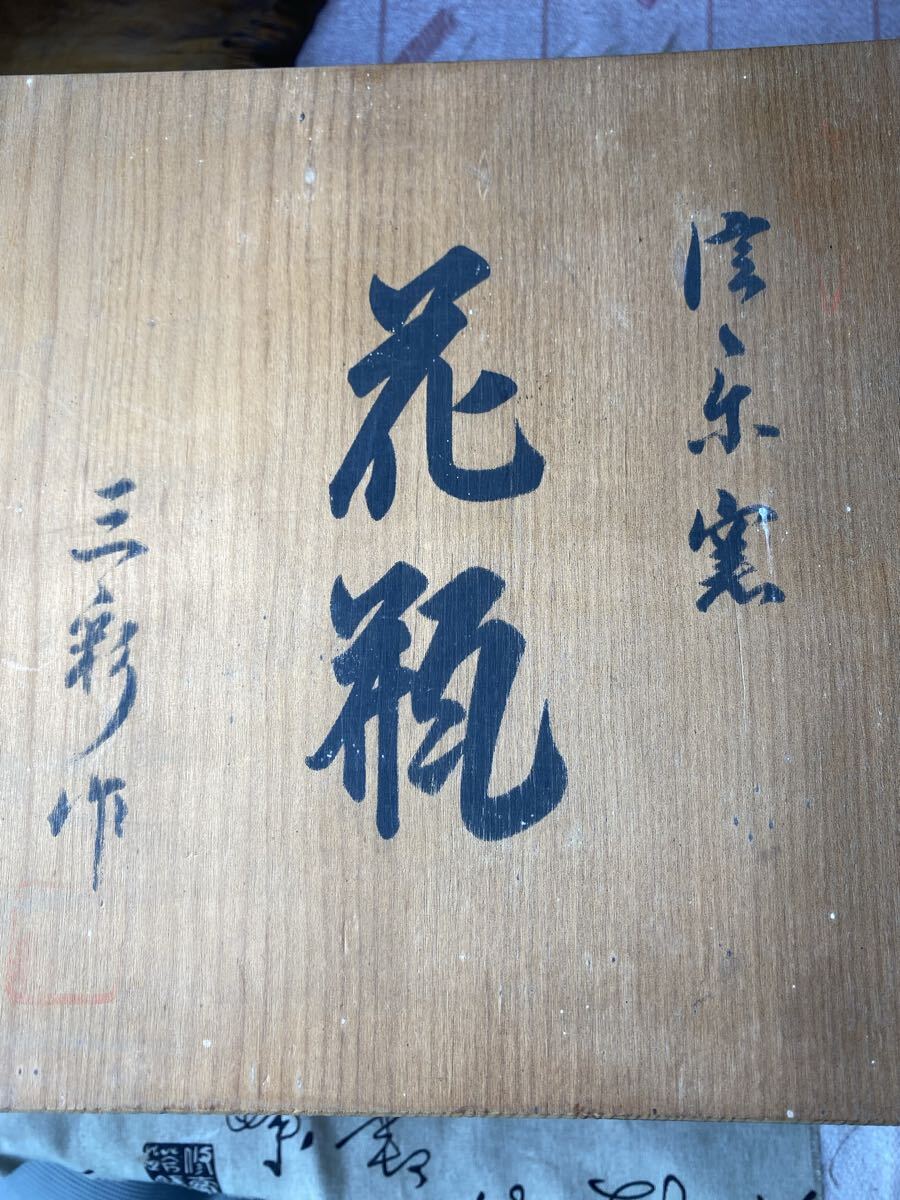 信楽窯
花瓶
三彩作